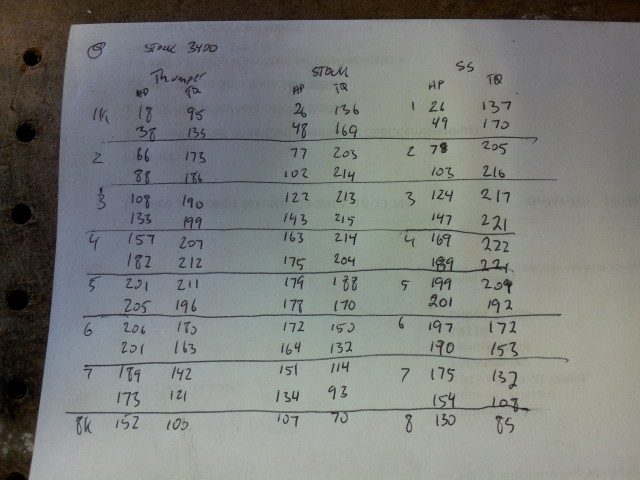 9 STOCK 3400
Thumper STOCK SS
HP TQ HP TQ HP TQ
1K 18 95 26 136 1 26 137
38 135 48 169 49 170
2 66 173 77 203 2 78 205
88 186 102 214 103 216
3 108 190 122 213 3 124 217
133 199 143 215 147 221
4 157 207 163 214 4 169 222
182 212 175 204 189 221
5 201 211 179 188 5 199 209
205 196 178 170 201 192
6 206 180 172 150 6 197 172
201 163 164 132 190 153
7 189 142 151 114 7 175 132
173 121 134 93 154 108
8K 152 100 107 70 8 130 85